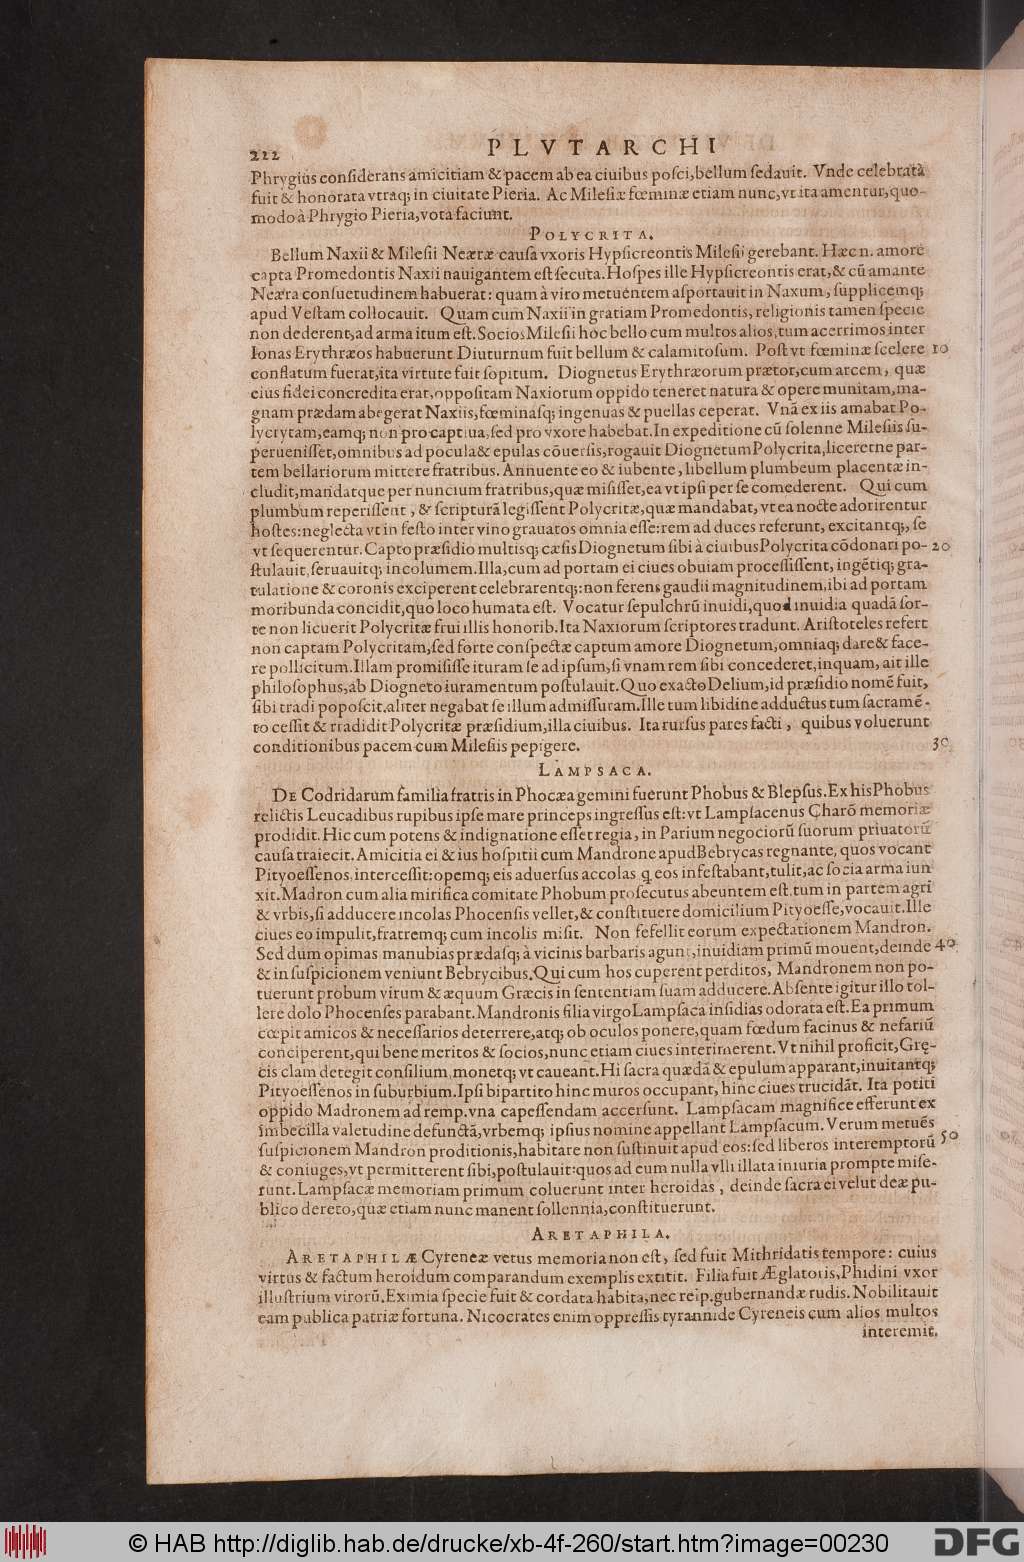 222 PLVTARCHI
Phrygius conſiderans amicitiam & pacem ab ea ciuibus poſci, bellum ſedauit. Vnde celebrata
fuit & honorata vtraq; in ciuitate Pieria. Ac Mileſiæ fœminæ etiam nunc, vt ita amentur, quo-
modo à Phrygio Pieria, vota faciunt.
POLYCRITA.
Bellum Naxii & Mileſii Neæræ cauſa vxoris Hypſicreontis Mileſii gerebant. Hæc n. amore
capta Promedontis Naxii nauigantem eſt ſecuta. Hoſpes ille Hypſicreontis erat, & cū amante
Neæra conſuetudinem habuerat: quam à viro metuentem aſportauit in Naxum, ſupplicemq;
apud Veſtam collocauit. Quam cum Naxii in gratiam Promedontis, religionis tamen ſpecie
non dederent, ad arma itum eſt. Socios Mileſii hoc bello cum multos alios, tum acerrimos inter
Ionas Erythræos habuerunt Diuturnum fuit bellum & calamitoſum. Poſt vt fœminæ ſcelere 10
conflatum fuerat, ita virtute fuit ſopitum. Diognetus Erythræorum prætor, cum arcem, quæ
eius fidei concredita erat, oppoſitam Naxiorum oppido teneret natura & opere munitam, ma-
gnam prædam abegerat Naxiis, fœminaſq; ingenuas & puellas ceperat. Vnā ex iis amabat Po-
lycrytam, eamq; non pro captiua, ſed pro vxore habebat. In expeditione cū ſolenne Mileſiis ſu-
perueniſſet, omnibus ad pocula & epulas cōuerſis, rogauit Diognetum Polycrita, liceretne par-
tem bellariorum mittere fratribus. Annuente eo & iubente, libellum plumbeum placentæ in-
cludit, mandatque per nuncium fratribus, quæ miſiſſet, ea vt ipſi per ſe comederent. Qui cum
plumbum reperiſſent, & ſcripturā legiſſent Polycritæ, quæ mandabat, vt ea nocte adorirentur
hoſtes: neglecta vt in feſto inter vino grauatos omnia eſſe: rem ad duces referunt, excitantq;, ſe
vt ſequerentur. Capto præſidio multisq; cæſis Diognetum ſibi à ciuibus Polycrita cōdonari po- 20
ſtulauit, ſeruauitq; incolumem. Illa, cum ad portam ei ciues obuiam proceſſiſſent, ingētiq; gra-
tulatione & coronis exciperent celebrarentq;: non ferens gaudii magnitudinem, ibi ad portam
moribunda concidit, quo loco humata eſt. Vocatur ſepulchrū inuidi, quod inuidia quadā for-
te non licuerit Polycritæ frui illis honorib. Ita Naxiorum ſcriptores tradunt. Ariſtoteles refert
non captam Polycritam, ſed forte conſpectæ captum amore Diognetum, omniaq; dare & face-
re pollicitum. Illam promiſiſſe ituram ſe ad ipſum, ſi vnam rem ſibi concederet, inquam, ait ille
philoſophus, ab Diogneto iuramentum poſtulauit. Quo exacto Delium, id præſidio nomē fuit,
ſibi tradi popoſcit, aliter negabat ſe illum admiſſuram. Ille tum libidine adductus tum ſacramē-
to ceſſit & rradidit Polycritæ præſidium, illa ciuibus. Ita rurſus pares facti, quibus voluerunt
conditionibus pacem cum Mileſiis pepigere. 30
LAMPSACA.
DE Codridarum familia fratris in Phocæa gemini fuerunt Phobus & Blepſus. Ex his Phobus
relictis Leucadibus rupibus ipſe mare princeps ingreſſus eſt: vt Lampſacenus Charō memoriæ
prodidit. Hic cum potens & indignatione eſſet regia, in Parium negociorū ſuorum priuatorū
cauſa traiecit. Amicitia ei & ius hoſpitii cum Mandrone apud Bebrycas regnante, quos vocant
Pityoeſſenos, interceſſit: opemq; eis aduerſus accolas q eos infeſtabant, tulit, ac ſocia arma iun
xit. Madron cum alia mirifica comitate Phobum proſecutus abeuntem eſt, tum in partem agri
& vrbis, ſi adducere incolas Phocenſis vellet, & conſtituere domicilium Pityoeſſe, vocauit. Ille
ciues eo impulit, fratremq; cum incolis miſit. Non fefellit eorum expectationem Mandron.
Sed dum opimas manubias prædaſq; à vicinis barbaris agunt, inuidiam primū mouent, deinde 40
& in ſuſpicionem veniunt Bebrycibus. Qui cum hos cuperent perditos, Mandronem non po-
tuerunt probum virum & æquum Græcis in ſententiam ſuam adducere. Abſente igitur illo tol-
lere dolo Phocenſes parabant. Mandronis filia virgo Lampſaca inſidias odorata eſt. Ea primum
cœpit amicos & neceſſarios deterrere, atq; ob oculos ponere, quam fœdum facinus & nefariū
conciperent, qui bene meritos & ſocios, nunc etiam ciues interimerent. Vt nihil proficit, Grę-
cis clam detegit conſilium, monetq; vt caueant. Hi ſacra quædā & epulum apparant, inuitantq;
Pityoeſſenos in ſuburbium. Ipſi bipartito hinc muros occupant, hinc ciues trucidāt. Ita potiti
oppido Madronem ad remp. vna capeſſendam accerſunt. Lampſacam magnifice efferunt ex
imbecilla valetudine defunctā, vrbemq; ipſius nomine appellant Lampſacum. Verum metuēs
ſuſpicionem Mandron proditionis, habitare non ſuſtinuit apud eos: ſed liberos interemptorū 50
& coniuges, vt permitterent ſibi, poſtulauit: quos ad eum nulla vlli illata iniuria prompte miſe-
runt. Lampſacæ memoriam primum coluerunt inter heroidas, deinde ſacra ei velut deæ pu-
blico dereto, quæ etiam nunc manent ſollennia, conſtituerunt.
ARETAPHILA.
ARETAPHILÆ Cyreneæ vetus memoria non eſt, ſed fuit Mithridatis tempore: cuius
virtus & factum heroidum comparandum exemplis extitit. Filia fuit Æglatoris, Phidini vxor
illuſtrium virorū. Eximia ſpecie fuit & cordata habita, nec reip. gubernandæ rudis. Nobilitauit
eam publica patriæ fortuna. Nicocrates enim oppreſſis tyrannide Cyreneis cum alios multos
interemit,
© HAB http://diglib.hab.de/drucke/xb-4f-260/start.htm?image=00230 DFG